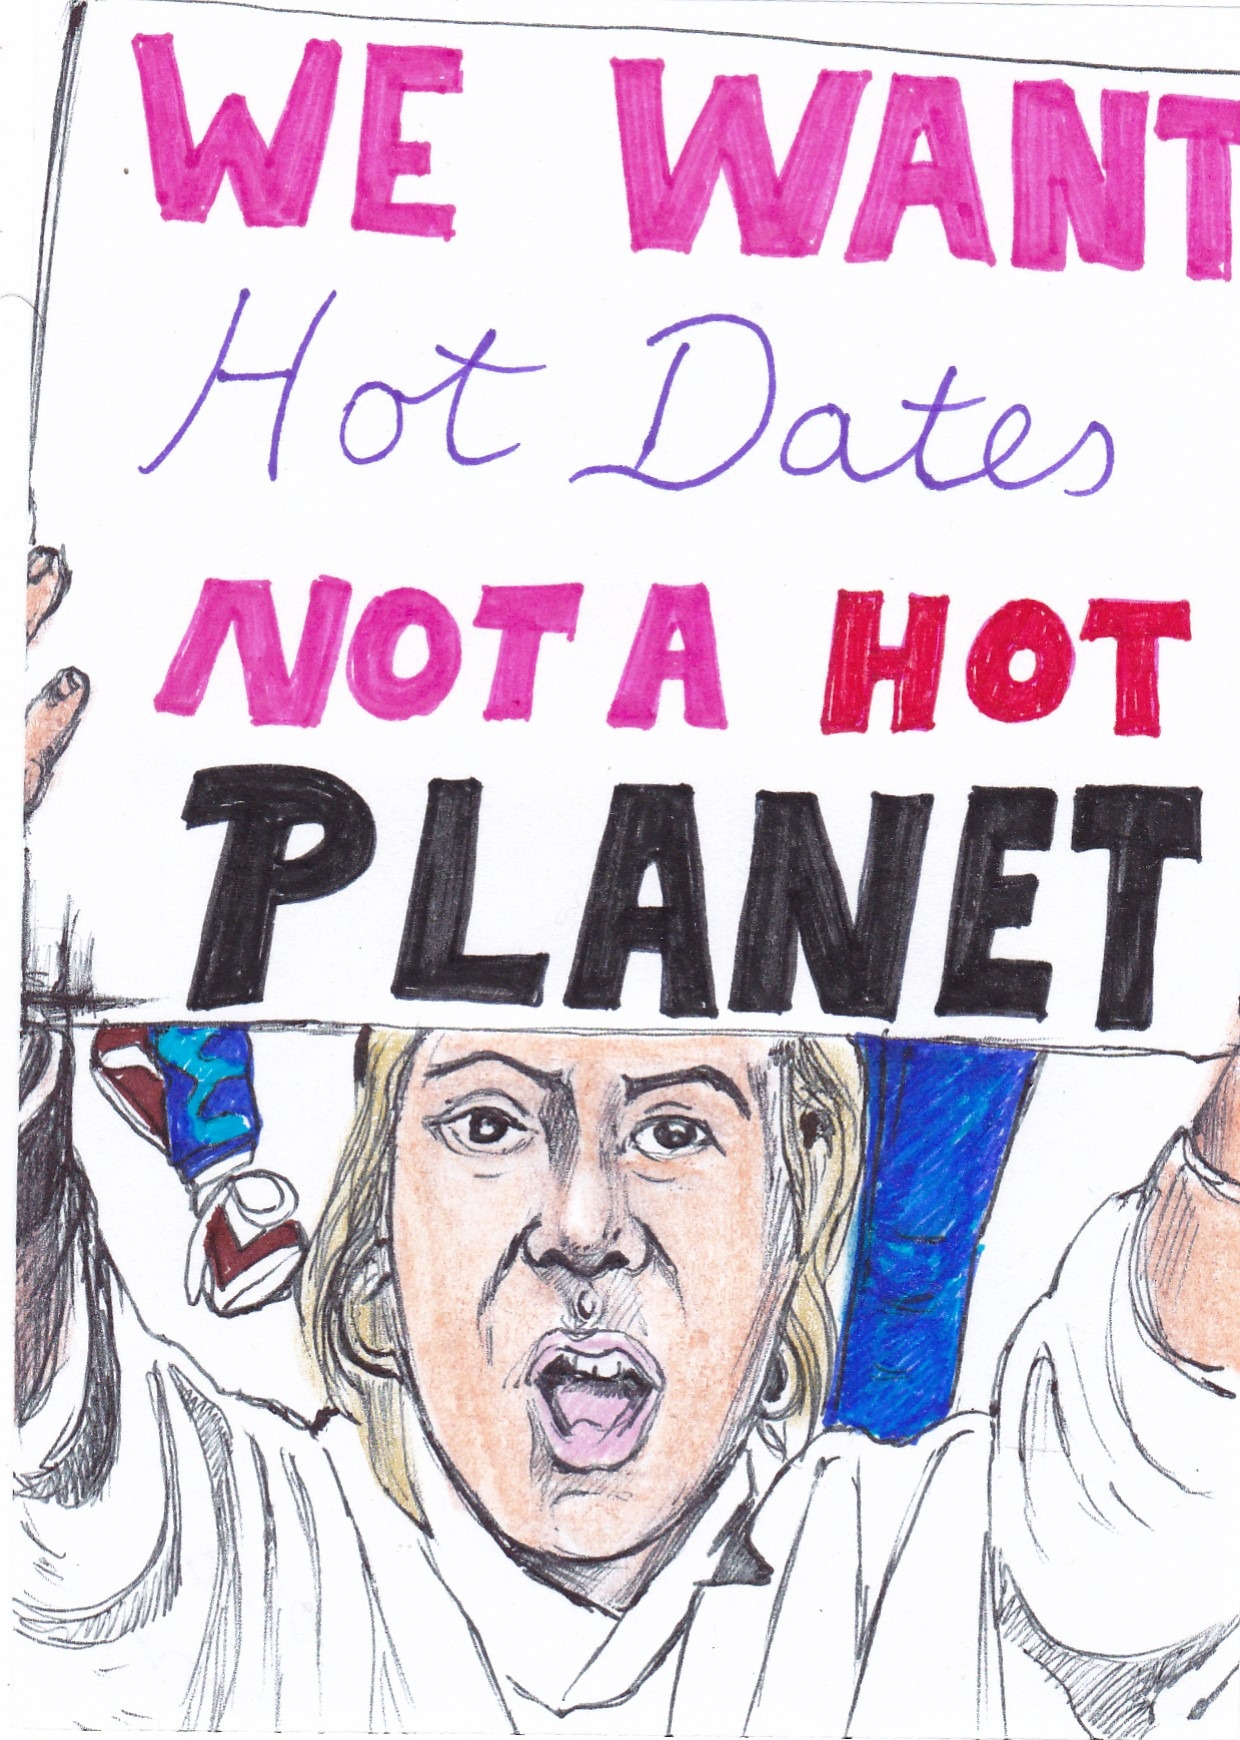 WE WANT
Hot Dates
NOT A HOT
PLANET